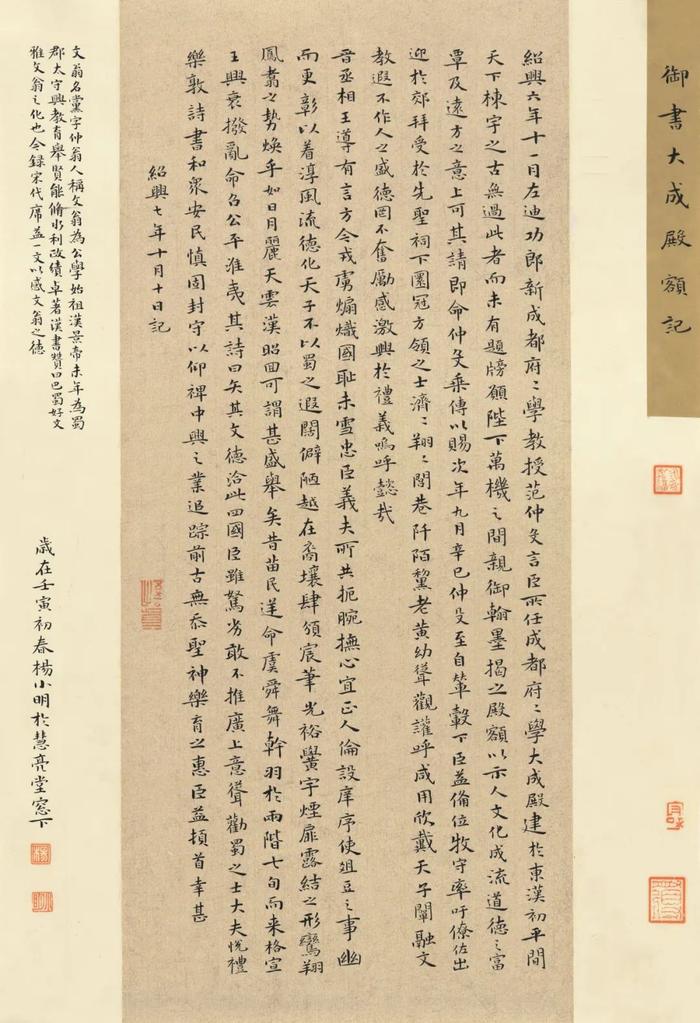 御書大成殿額記
紹興六年十一月左迪功郎新成都府〻學教授范仲殳言臣所任成都府〻學大成殿建於東漢初平間
天下棟宇之古無過此者而未有題牓願陛下萬機之間親御翰墨揭之殿額以示人文化成流道德之富
覃及遠方之意上可其請即命仲殳乘傳以賜次年九月辛巳仲殳至自輦轂下臣益備位牧守率吁僚佐出
迎於郊拜受於先聖祠下圜冠方領之士濟〻翔〻閭巷阡陌黧老黃幼聳觀讙呼咸用欣戴天子闡融文
教遐不作人之盛德罔不奮勵感激興於禮義嗚呼懿哉
晉丞相王導有言方今戎虜煽熾國恥未雪忠臣義夫所共扼腕撫心宜正人倫設庠序使俎豆之事幽
而更彰以着淳風流德化天子不以蜀之遐闊僻陋越在裔壤肆頒宸筆光裕黌宇煙扉露結之形鸞翔
鳳翥之勢煥乎如日月麗天雲漢昭回可謂甚盛舉矣昔苗民逆命虞舜舞幹羽於兩階七旬而来格宣
王興衰撥亂命召公平淮夷其詩曰矢其文德洽此四國臣雖駑劣敢不推廣上意聳勸蜀之士大夫悅禮
樂敦詩書和衆安民慎固封守以仰裨中興之業追踪前古無忝聖神樂育之惠臣益頓首幸甚
紹興七年十月十日記
文翁名黨字仲翁人稱文翁為公學始祖漢景帝末年為蜀
郡太守興教育舉賢能脩水利政績卓著漢書贊曰巴蜀好文
雅文翁之化也今録宋代席益一文以感文翁之德
歲在壬寅初春楊小明於慧亮堂窓下